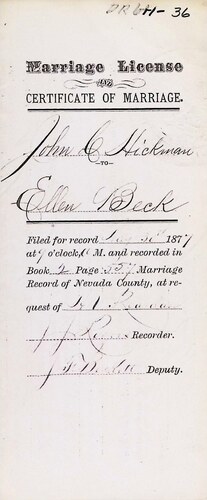 DR64- 36
Marriage License
AND
CERTIFICATE OF MARRIAGE.
John C Hickman
—TO—
Ellen Beck
Filed for record 1877
at 9 o'clock, A M. and recorded in
Book 2 Page 357 Marriage
Record of Nevada County, at re-
quest of
Recorder.
Deputy.